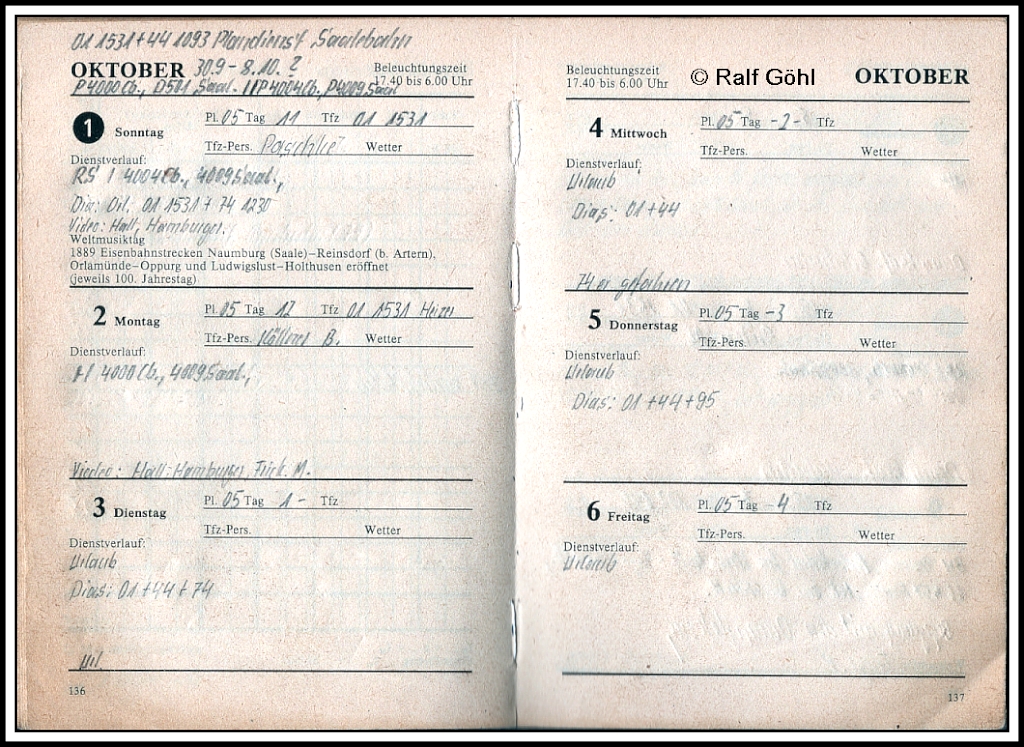 01 1531+44 1093 Plandienst Saalebahn
OKTOBER 30.9 - 8.10. ?
Beleuchtungszeit
17.40 bis 6.00 Uhr
P4000 Cb., D501 Saal. // P4004 Cb., P4009 Saal
1 Sonntag
Pl. 05 Tag 11 Tfz 01 1531
Tfz-Pers. Wetter
Dienstverlauf:
RS 1 4004 Cb., 4009 Saal.,
Dia: Oil. 01 1531 + 74 1230
Video: Hall, Hamburger.
Weltmusiktag
1889 Eisenbahnstrecken Naumburg (Saale)–Reinsdorf (b. Artern),
Orlamünde–Oppurg und Ludwigslust–Holthusen eröffnet
(jeweils 100. Jahrestag)
2 Montag
Pl. 05 Tag 12 Tfz 01 1531 Heizer
Tfz-Pers. B. Wetter
Dienstverlauf:
4000 Cb., 4009 Saal.,
Viedeo: Hall, Hamburger, Türk. M.
3 Dienstag
Pl. 05 Tag 1- Tfz
Tfz-Pers. Wetter
Dienstverlauf:
Urlaub
Dias: 01 + 44 + 74
136
Beleuchtungszeit
17.40 bis 6.00 Uhr
© Ralf Göhl
OKTOBER
4 Mittwoch
Pl. 05 Tag -2- Tfz
Tfz-Pers. Wetter
Dienstverlauf:
Urlaub
Dias: 01+44
74er gefahren
5 Donnerstag
Pl. 05 Tag -3 Tfz
Tfz-Pers. Wetter
Dienstverlauf:
Urlaub
Dias: 01 +44+95
6 Freitag
Pl. 05 Tag -4 Tfz
Tfz-Pers. Wetter
Dienstverlauf:
Urlaub
137